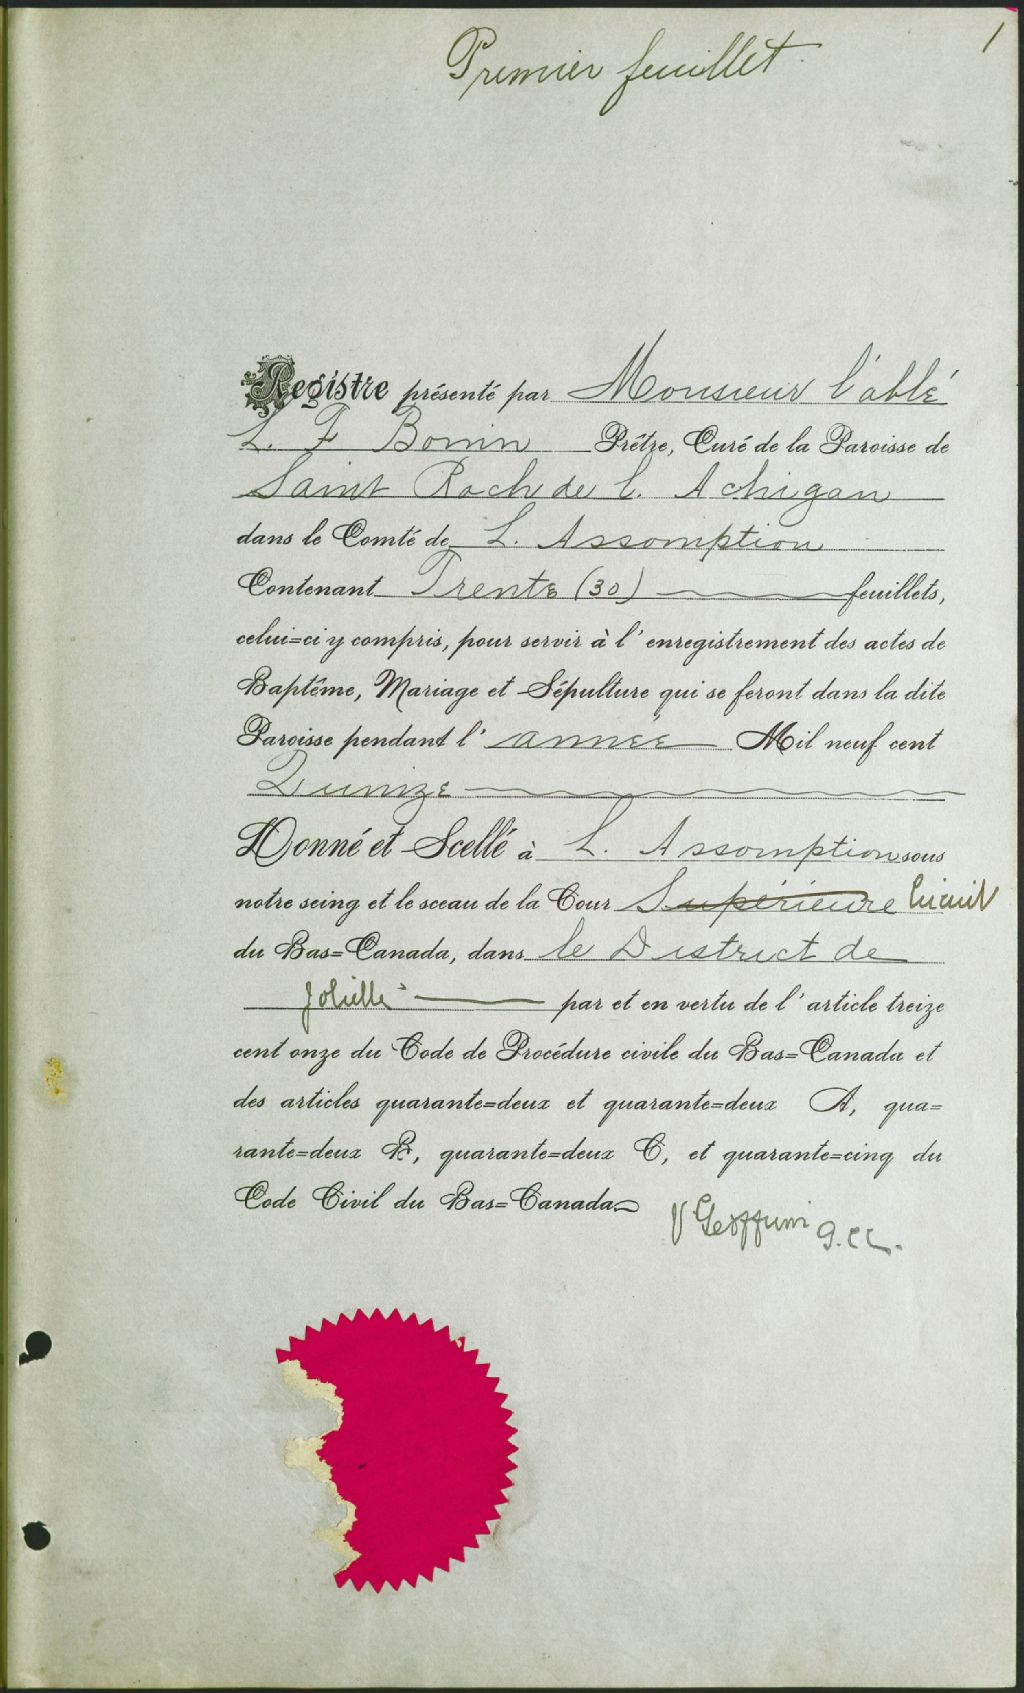 1
Premier feuillet.
Registre présenté par Monsieur l'abbé
L. F Bonin Prêtre, Curé de la Paroisse de
Saint Roch de l. Achigan
dans le Comté de L. Assomption
Contenant Trente (30) feuillets,
celui=ci y compris, pour servir à l'enregistrement des actes de
Baptême, Mariage et Sépulture qui se feront dans la dite
Paroisse pendant l'année Mil neuf cent
Quinze
Donné et Scellé à L. Assomption sous
notre seing et le sceau de la Cour Supérieure Circuit
du Bas=Canada, dans le District de
Joliette par et en vertu de l'article treize
cent onze du Code de Procédure civile du Bas=Canada et
des articles quarante=deux et quarante=deux A, qua=
rante=deux B, quarante=deux C, et quarante=cinq du
Code Civil du Bas=Canada